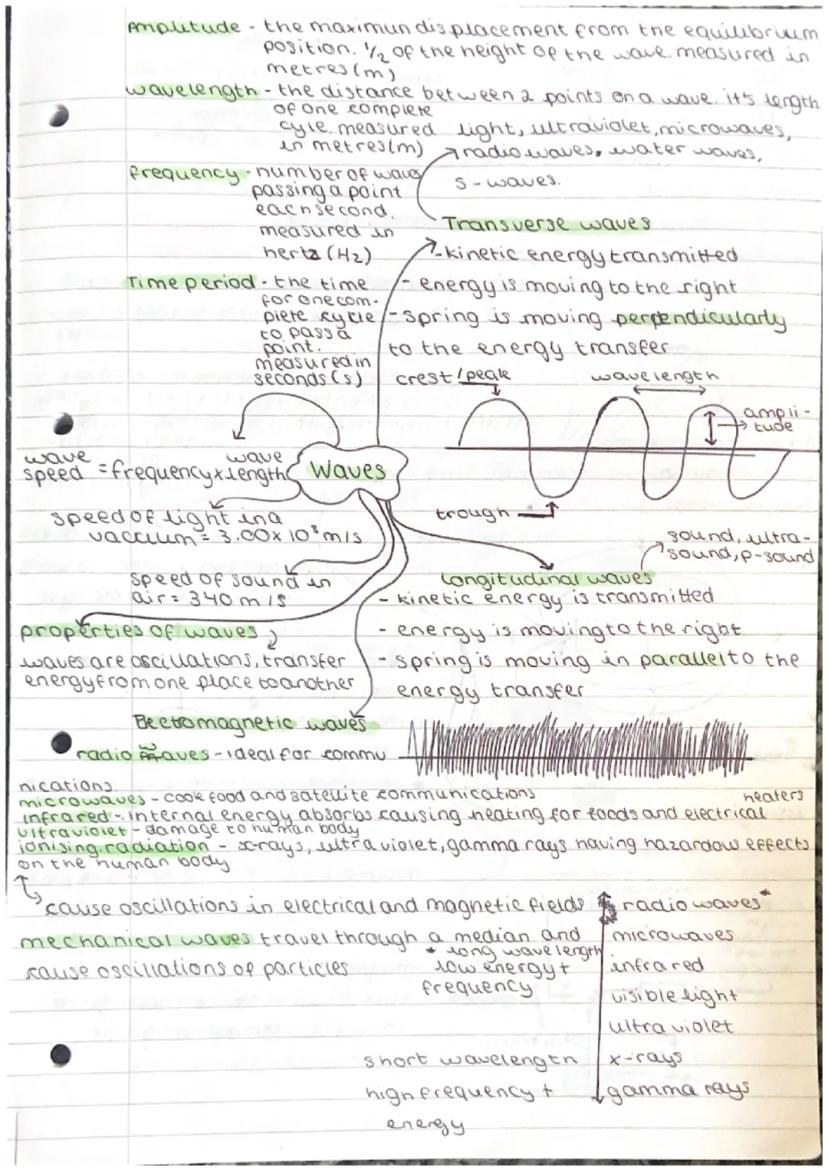 Amplitude - the maximun displacement from the equilibrium
position. 1/2 of the height of the wave. measured in
metres (m)
wavelength - the distance between 2 points on a wave. it's length
of one complete
cycle. measured
in metres (m)
light, ultraviolet, microwaves,
radiowaves, water waves,
s-waves.
frequency - number of waves
passing a point
each second.
measured in
hertz (Hz)
Transverse waves
- kinetic energy transmitted
- energy is moving to the right
- spring is moving perpendicularly
to the energy transfer
Time period - the time
for one com-
plete cycle
to pass a
point.
measured in
seconds (s)
crest/peak
wavelength
ampli-
tude
trough
Waves
wave speed = frequency x wave length
speed of light in a
vaccium = 3.00x10⁸ m/s
speed of sound in
air = 340 m/s
properties of waves
waves are oscillations, transfer
energy from one place to another
Longitudinal waves
sound, ultra-
sound, p-sound
- kinetic energy is transmitted
- energy is moving to the right
- spring is moving in parallel to the
energy transfer
Electromagnetic waves
radio waves - ideal for commu
nications
microwaves - cook food and satellite communications
infrared - internal energy absorbs causing heating for foods and electrical heaters
ultraviolet - damage to human body
ionising radiation - x-rays, ultra violet, gamma rays having hazardow effects
on the human body
cause oscillations in electrical and magnetic fields
mechanical waves travel through a median and
cause oscillations of particles
* long wavelength
low energy +
frequency
radio waves*
microwaves
infrared
visible light
ultra violet
x-rays
gamma rays
short wavelength
high frequency +
energy